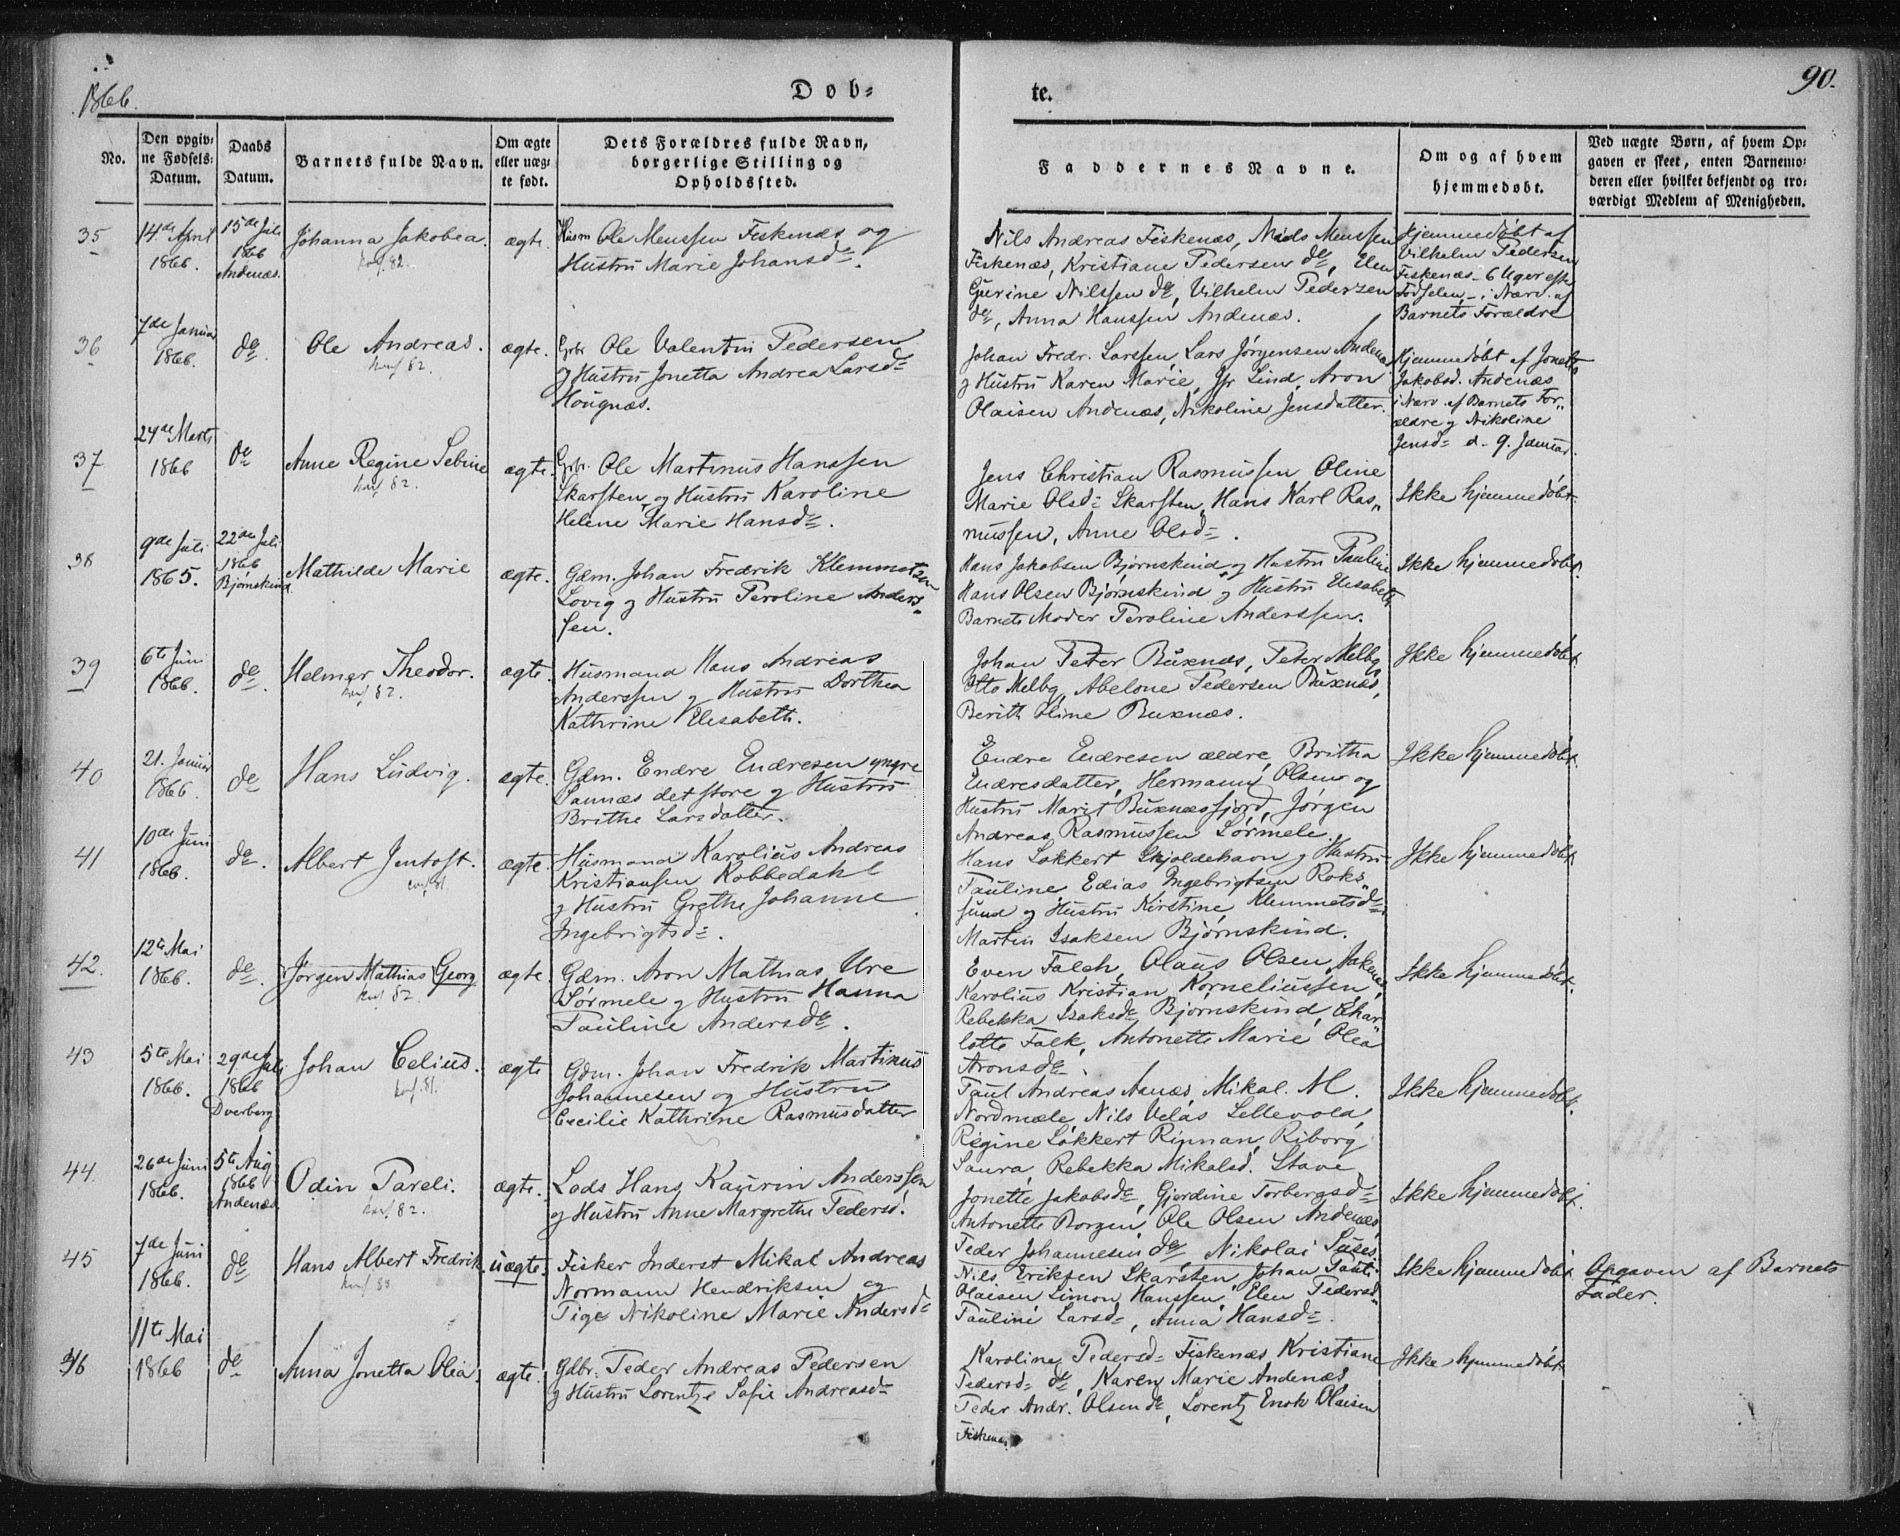 1866.
Døb-
te.
90.
No.
Den opgiv-
ne Fødsels-
Datum.
Daabs
Datum.
Barnets fulde Navn.
Om ægte
eller uæg-
te født.
Dets Forældres fulde Navn,
borgerlige Stilling og
Opholdssted.
Faddernes Navne.
Om og af hvem
hjemmedøbt.
Ved uægte Børn, af hvem Op-
gaven er skeet, enten Barnemo-
deren eller hvilket bekjendt og tro-
værdigt Medlem af Menigheden.
35
14de April
1866.
15de Juli
1866
Andenæs.
Johanna Jakobea.
konf. 82.
ægte.
Husm Ole Monssen Fiskenæs og
Hustru Marie Johansd.
Nils Andreas Fiskenæs, Mads Monssen
Fiskenæs, Kristiane Pedersen do, Elen
Gurine Nilssen do, Vilhelm Pedersen
do, Anna Hanssen Andenæs.
Hjemmedøbt af
Vilhelm Pedersen
Fiskenæs 6 Uger efter
Fødselen i Nærv. af
Barnets Forældre
36
7de Januar
1866.
do.
Ole Andreas.
konf 82.
ægte.
Grbr Ole Valentin Pedersen
og Hustru Jonetta Andrea Larsd
Hougnæs.
Johan Fredr. Larssen, Lars Jørgensen Andenæs
og Hustru Karen Marie, Jfr Lind, Aron
Olaisen Andenæs, Nikoline Jensdatter.
Hjemmedøbt af Jonette
Jakobsd. Andenæs
i Nærv. af Barnets For„
ældre og Nikoline
Jensd d. 9. Januar.
37
24de Marts
1866
do
Anne Regine Sebine
konf 82.
ægte.
Grbr. Ole Martinus Hanssen
Skarsten og Hustru Karoline
Helene Marie Hansd.
Jens Christian Rasmussen Oline
Marie Olsd Skarsten, Hans Karl Ras„
mussen, Anne Olsd.
Ikke hjemmedøbt.
38
9de Juli
1865.
22de Juli
1866
Bjørnskind
Mathilde Marie
ægte.
Gdm. Johan Fredrik Klemmetsen
Lovig og Hustru Peroline Anders-
sen.
Hans Jakobsen Bjørnskind og Hustru Pauline
Hans Olsen Bjørnskind og Hustru Elisabeth
Barnets Moder Peroline Anderssen.
Ikke hjemmedøbt.
39
6te Juni
1866.
do.
Helmer Theodor.
konf 82.
ægte.
Husmand Hans Andreas
Anderssen og Hustru Dorthea
Kathrine Elisabeth.
Johan Peter Buxnæs, Peter Melby
Otto Melby, Abelone Pedersen Buxnæs,
Berith Oline Buxnæs.
Ikke hjemmedøbt.
40
21. Januar
1866.
do
Hans Ludvig.
ægte.
Gdm. Endre Endresen yngre
Sannæs det store og Hustru
Brithe Larsdatter.
Endre Endresen ældre, Britha
Endresdatter, Hermann Olsen og
Hustru Marit Buxnæsfjord, Jørgen
Andreas Rasmussen Sørmele.
Ikke hjemmedøbt.
41
10de Juni
1866.
do.
Albert Jentoft.
conf 81.
ægte.
Husmand Karolius Andreas
Kristiansen Kobbedahl
og Hustru Grethe Johanne
Ingebrigtsd.
Hans Løkkert Skjoldehavn og Hustru
Pauline Edias Ingebrigtsen Roks„
sund og Hustru Kirstine Klemmetsd
Martin Isaksen Bjørnskind.
Ikke hjemmedøbt.
42.
12te Mai
1866.
do.
Jørgen Mathias Georg
konf 82.
ægte
Gdm. Aron Mathias Ure
Sørmele og Hustru Hanna
Pauline Andersd.
Even Falch, Olaus Olsen,
Karolius Kristian Korneliussen,
Rebekka Isaksd Bjørnskind, Char„
lotte Falk, Antonette Marie Olea
Aronsd.
Ikke hjemmedøbt.
43
5te Mai
1866.
29de Juli
1866
Dverberg
Johan Celius.
konf. 81.
ægte
Gdm. Johan Fredrik Martinus
Johannesen og Hustru
Cecilie Kathrine Rasmusdatter
Paul Andreas Aanæs, Mikal M.
Nordmæle, Nils Velas Sellevold,
Regine Løkkert Rinnan, Riborg
Laura, Rebekka Mikalsd. Stave
Ikke hjemmedøbt.
44.
26de Juni
1866.
5te Aug
1866
Andenæs.
Odin Pareli.
konf. 82.
ægte.
Lods Hans Kaurin Anderssen
og Hustru Anne Margrethe Pedersd.
Jonette Jakobsd, Gjerdine Torbergsd
Antonette Borgen, Ole Olsen Andenæs,
Peder Johannesen do, Nikolai
Ikke hjemmedøbt.
45
7de Juni
1866.
do
Hans Albert Fredrik
konf 83
uægte.
Fisker Inderst Mikal Andreas
Normann Hendriksen og
Pige Nikoline Marie Andersd
Nils Eriksen Skarsten, Johan Paul
Olaisen Simon Hanssen, Elen Pedersd
Pauline Larsd, Anna Hansd.
Ikke hjemmedøbt.
Opgaven af Barnets
Fader.
46
11te Mai
1866
do
Anna Jonetta Olea.
ægte.
Gdbr. Peder Andreas Pedersen
og Hustru Lorentze Sofie Andreasd
Karoline Pedersd Fiskenæs Kristiane
Pedersd do, Karen Marie Andenæs,
Peder Andr. Olsen do, Lorentz Enok Olaisen
Fiskenæs
Ikke hjemmedøbt.